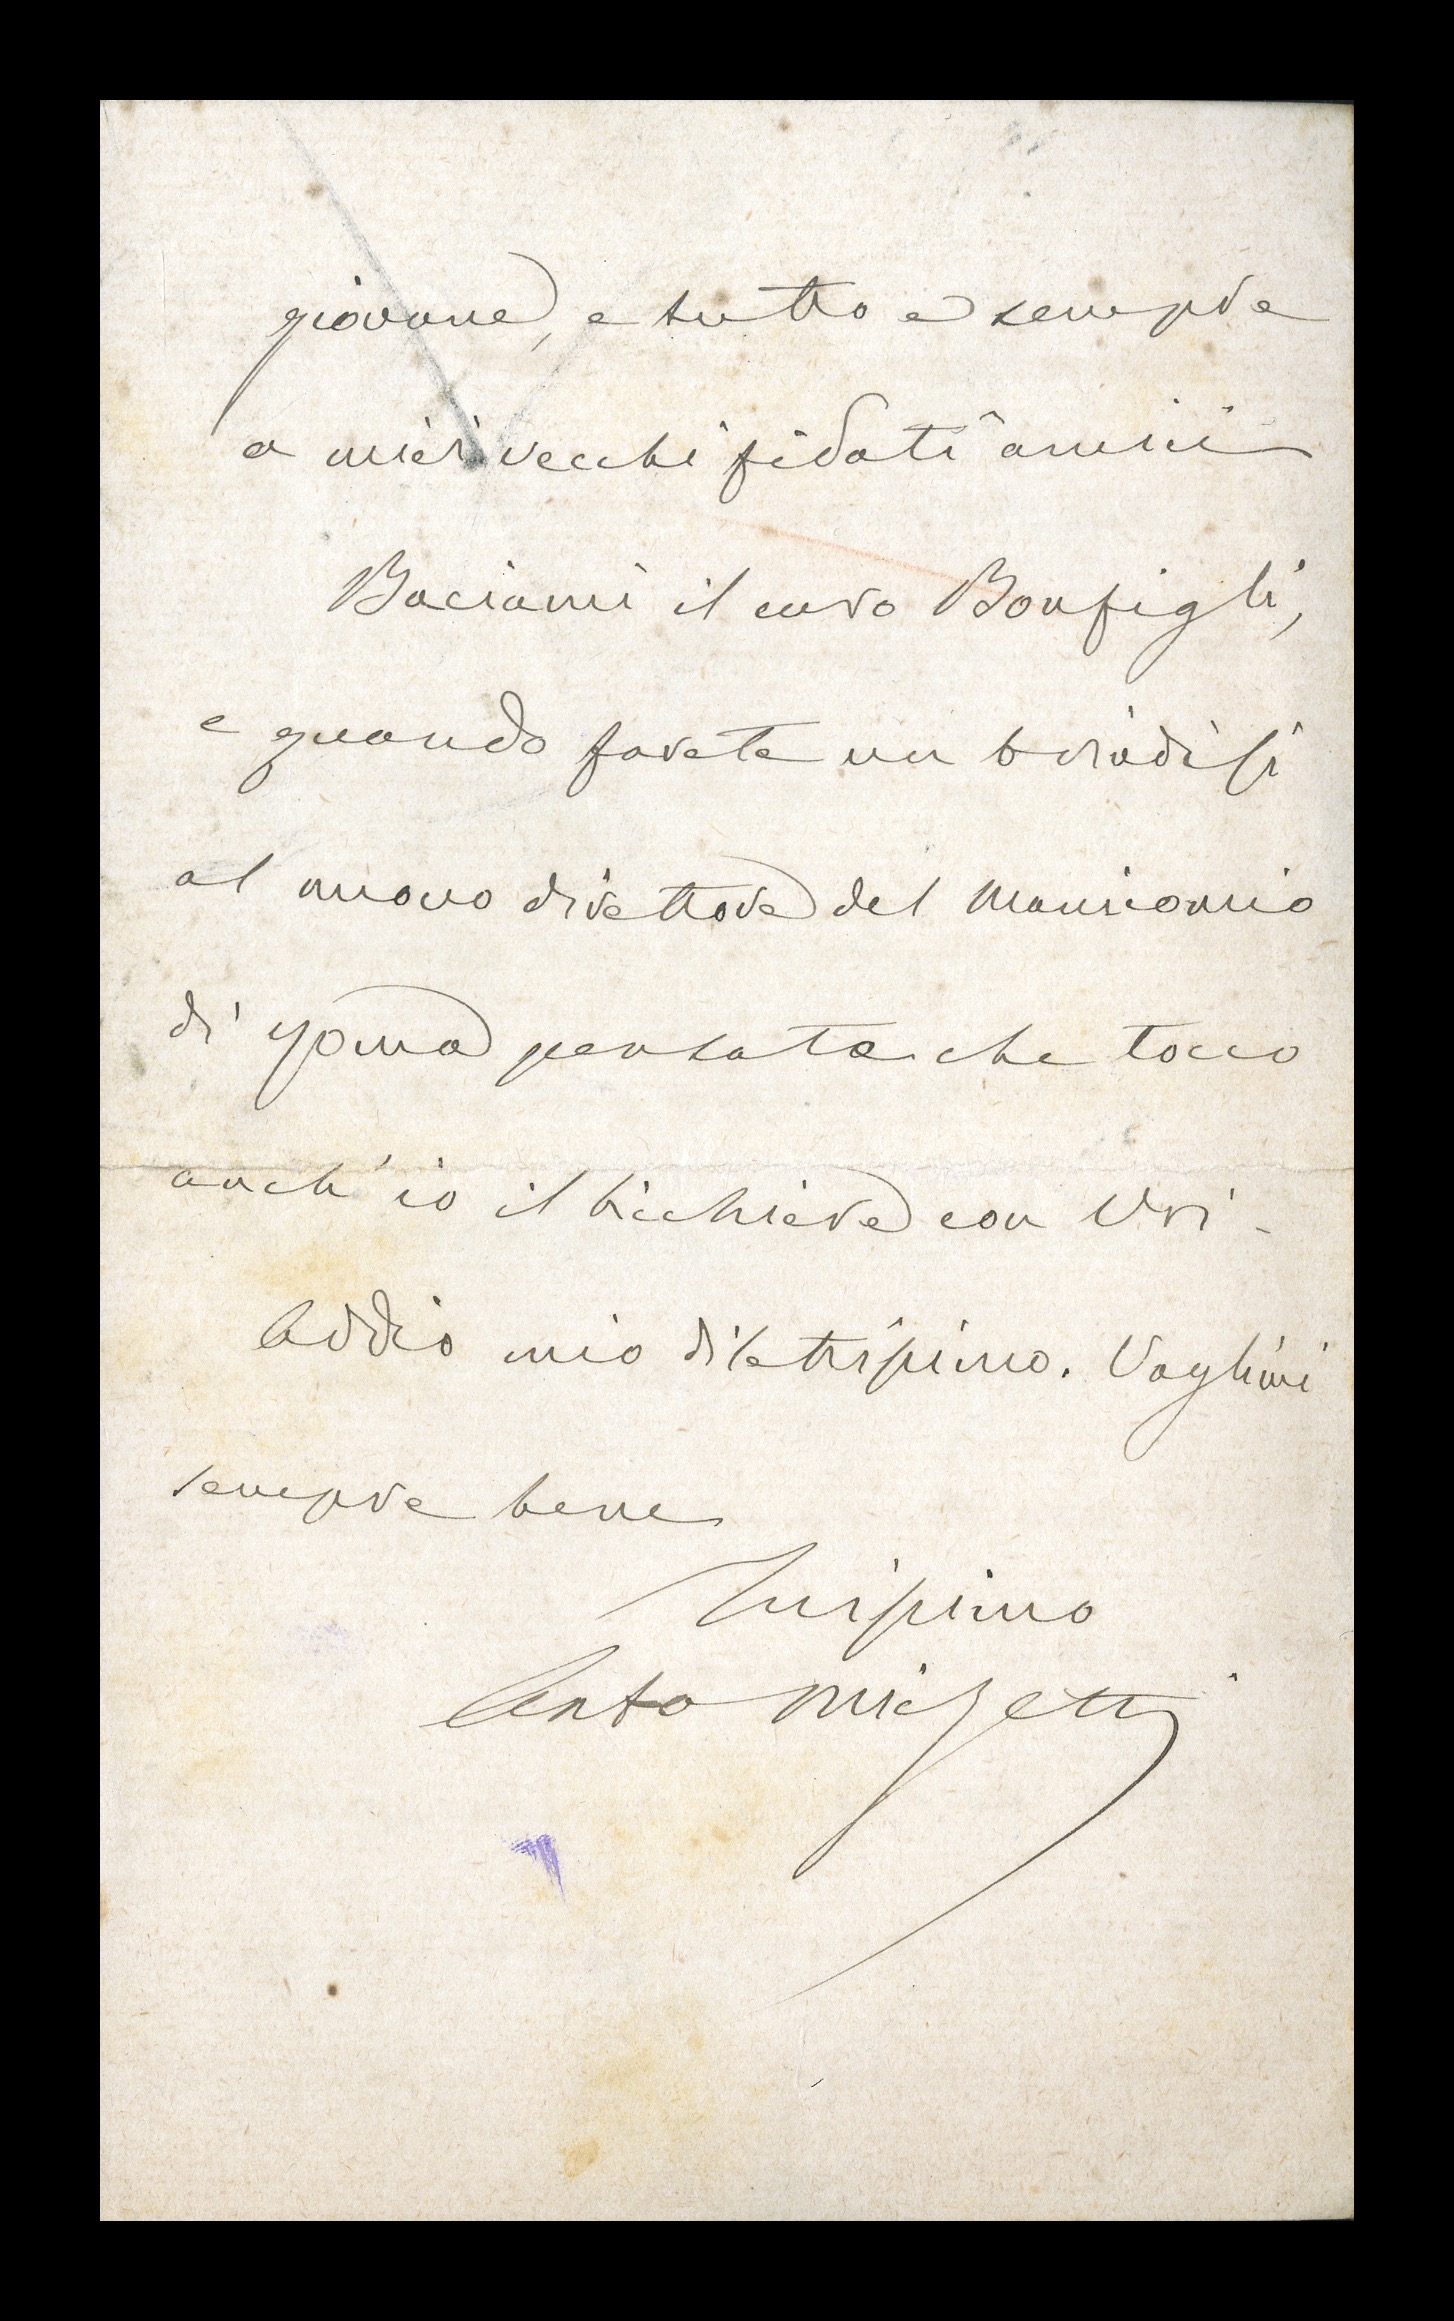 giovane, e tutto e sempre
a miei vecchi fidati amici
Baciami il caro Bonfigli,
e quando farete un brindisi
al nuovo direttore del Manicomio
di Roma pensate che tocco
anch'io il bicchiere con Voi.
Addio mio dilettissimo. Voglimi
sempre bene
Tuissimo